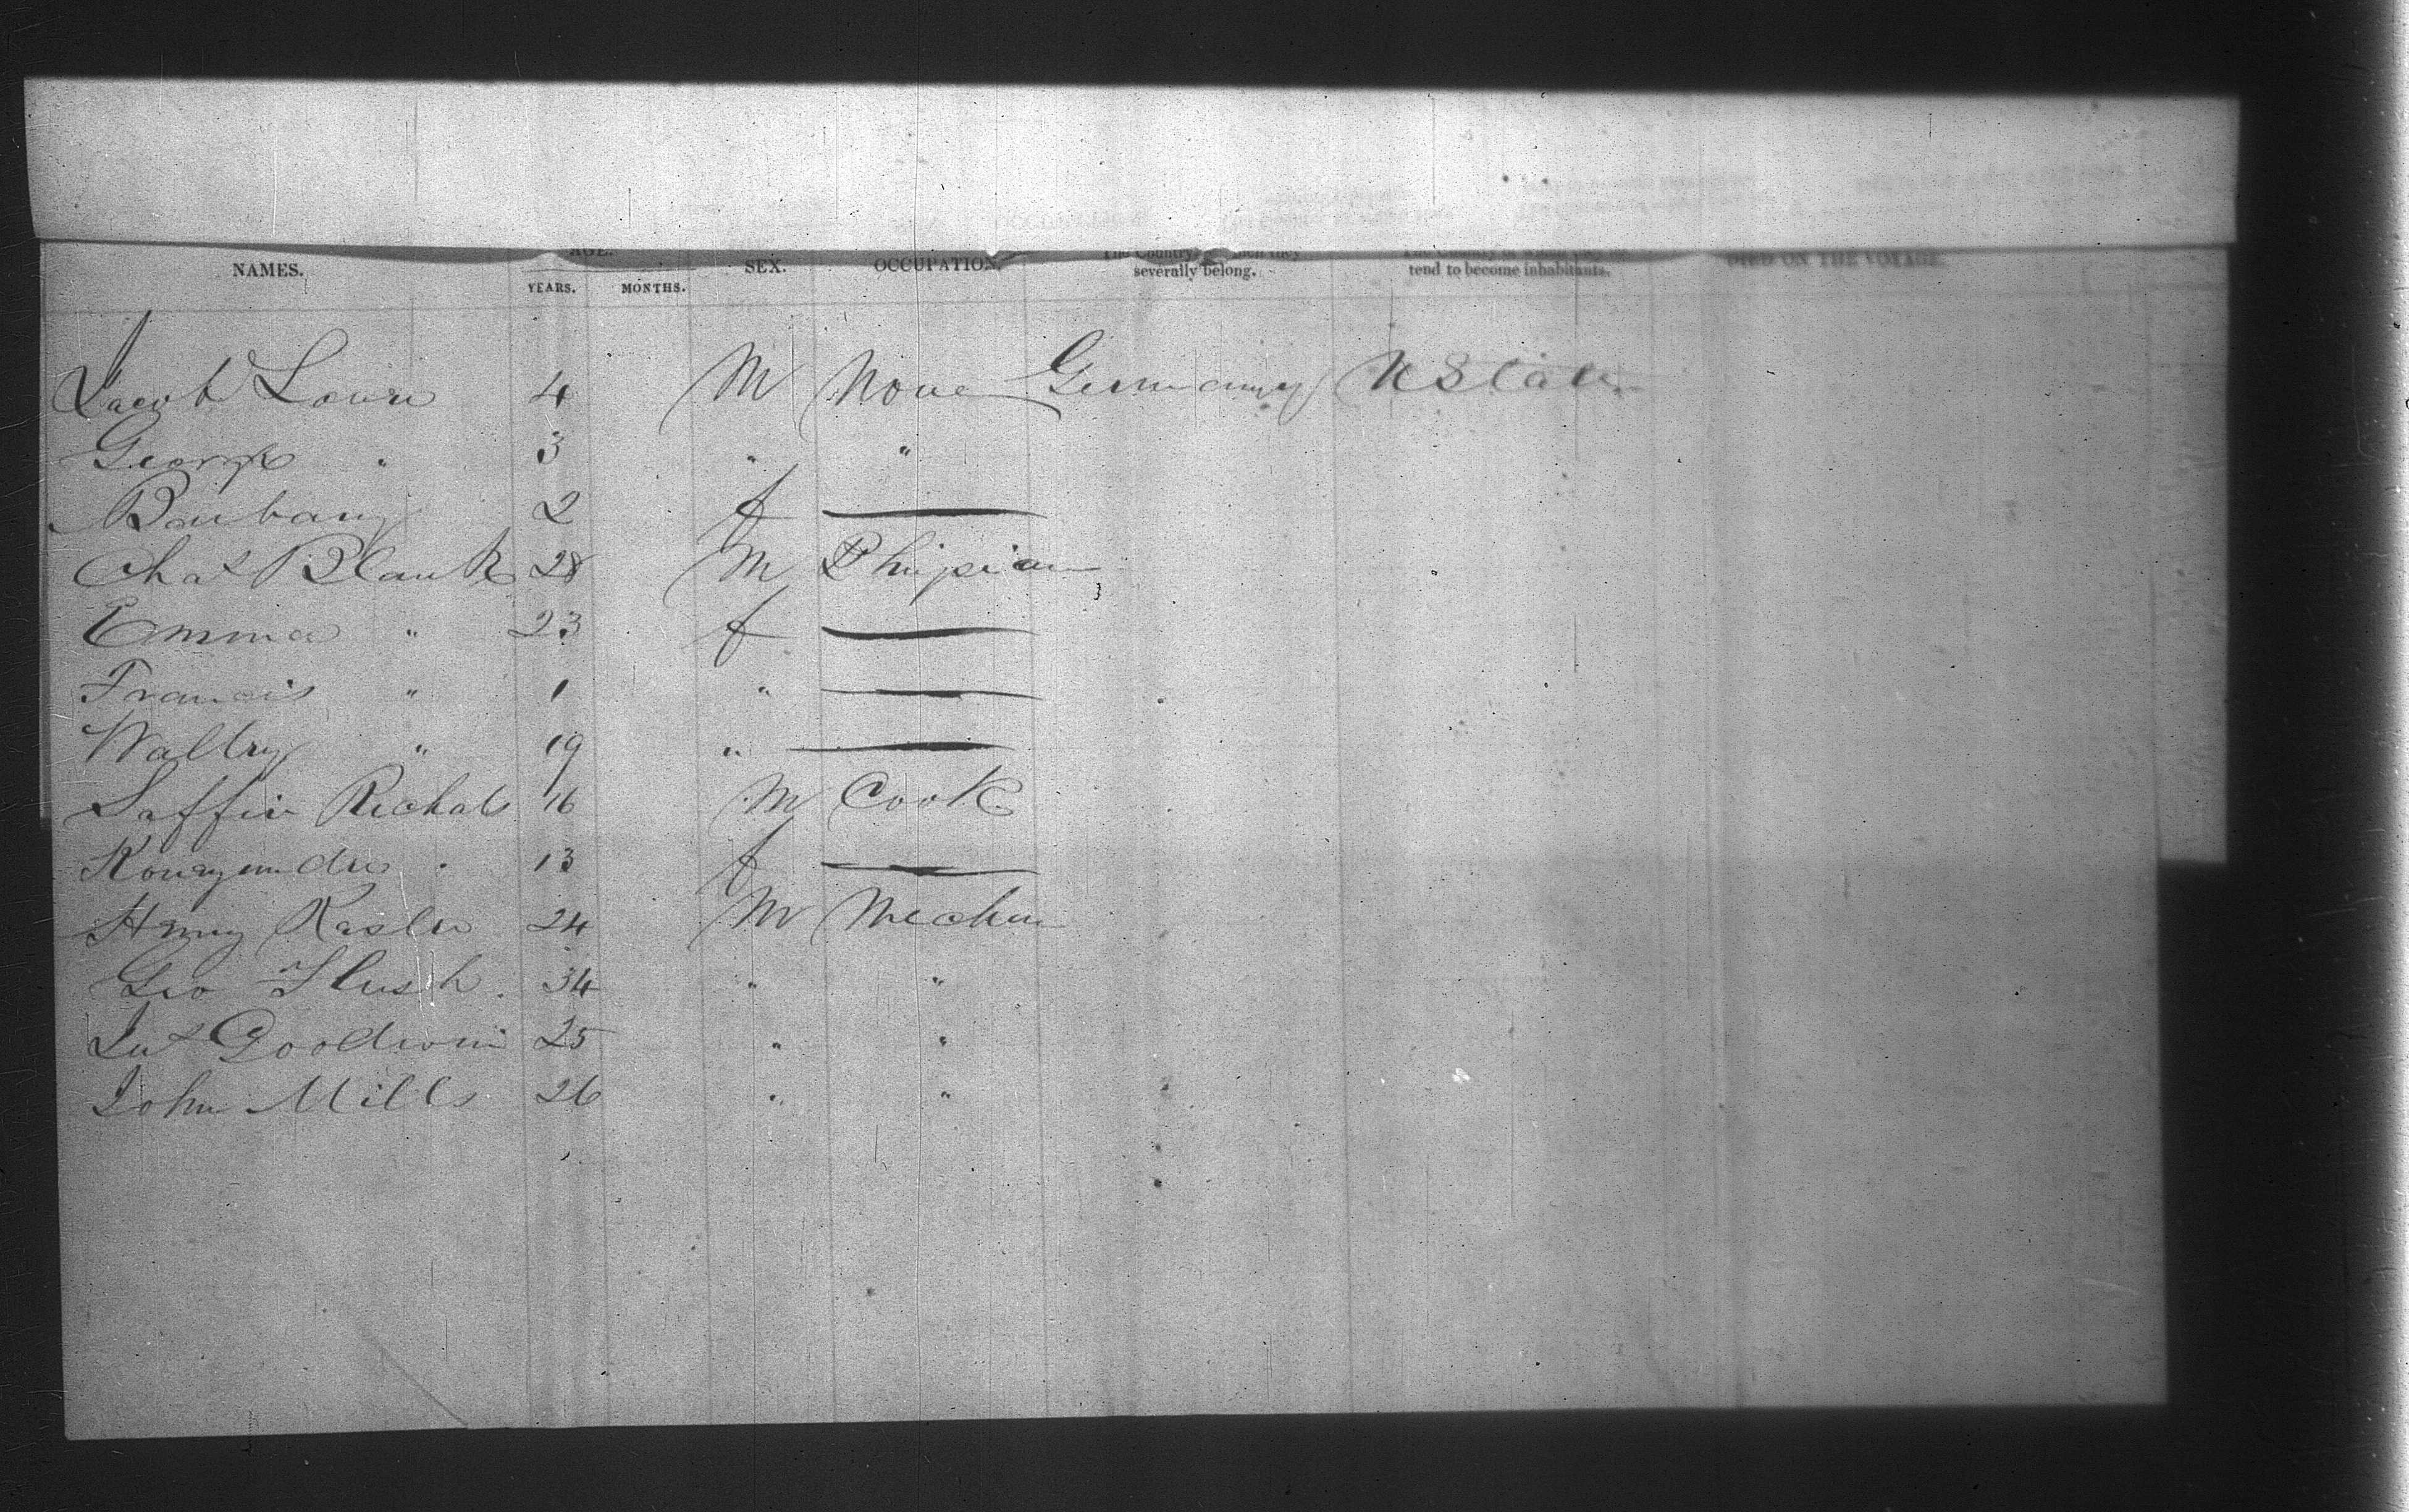 NAMES. AGE. YEARS. MONTHS. SEX. OCCUPATION. The Country which they severally belong. tend to become inhabitants. DIED ON THE VOYAGE.
Jacob Lowre 4 M None Germany U States
George " 3 " "
Barbary 2 f —
Chas Blank 28 M Phipian
Emma " 23 f —
Francis " 1 " —
Waltry " 19 " —
Saffir Richals 16 M Cook
13 f —
Henry Kasler 24 M Mechn
Geo Flush 34 " "
Goodwin 25 " "
John Mills 26 " "